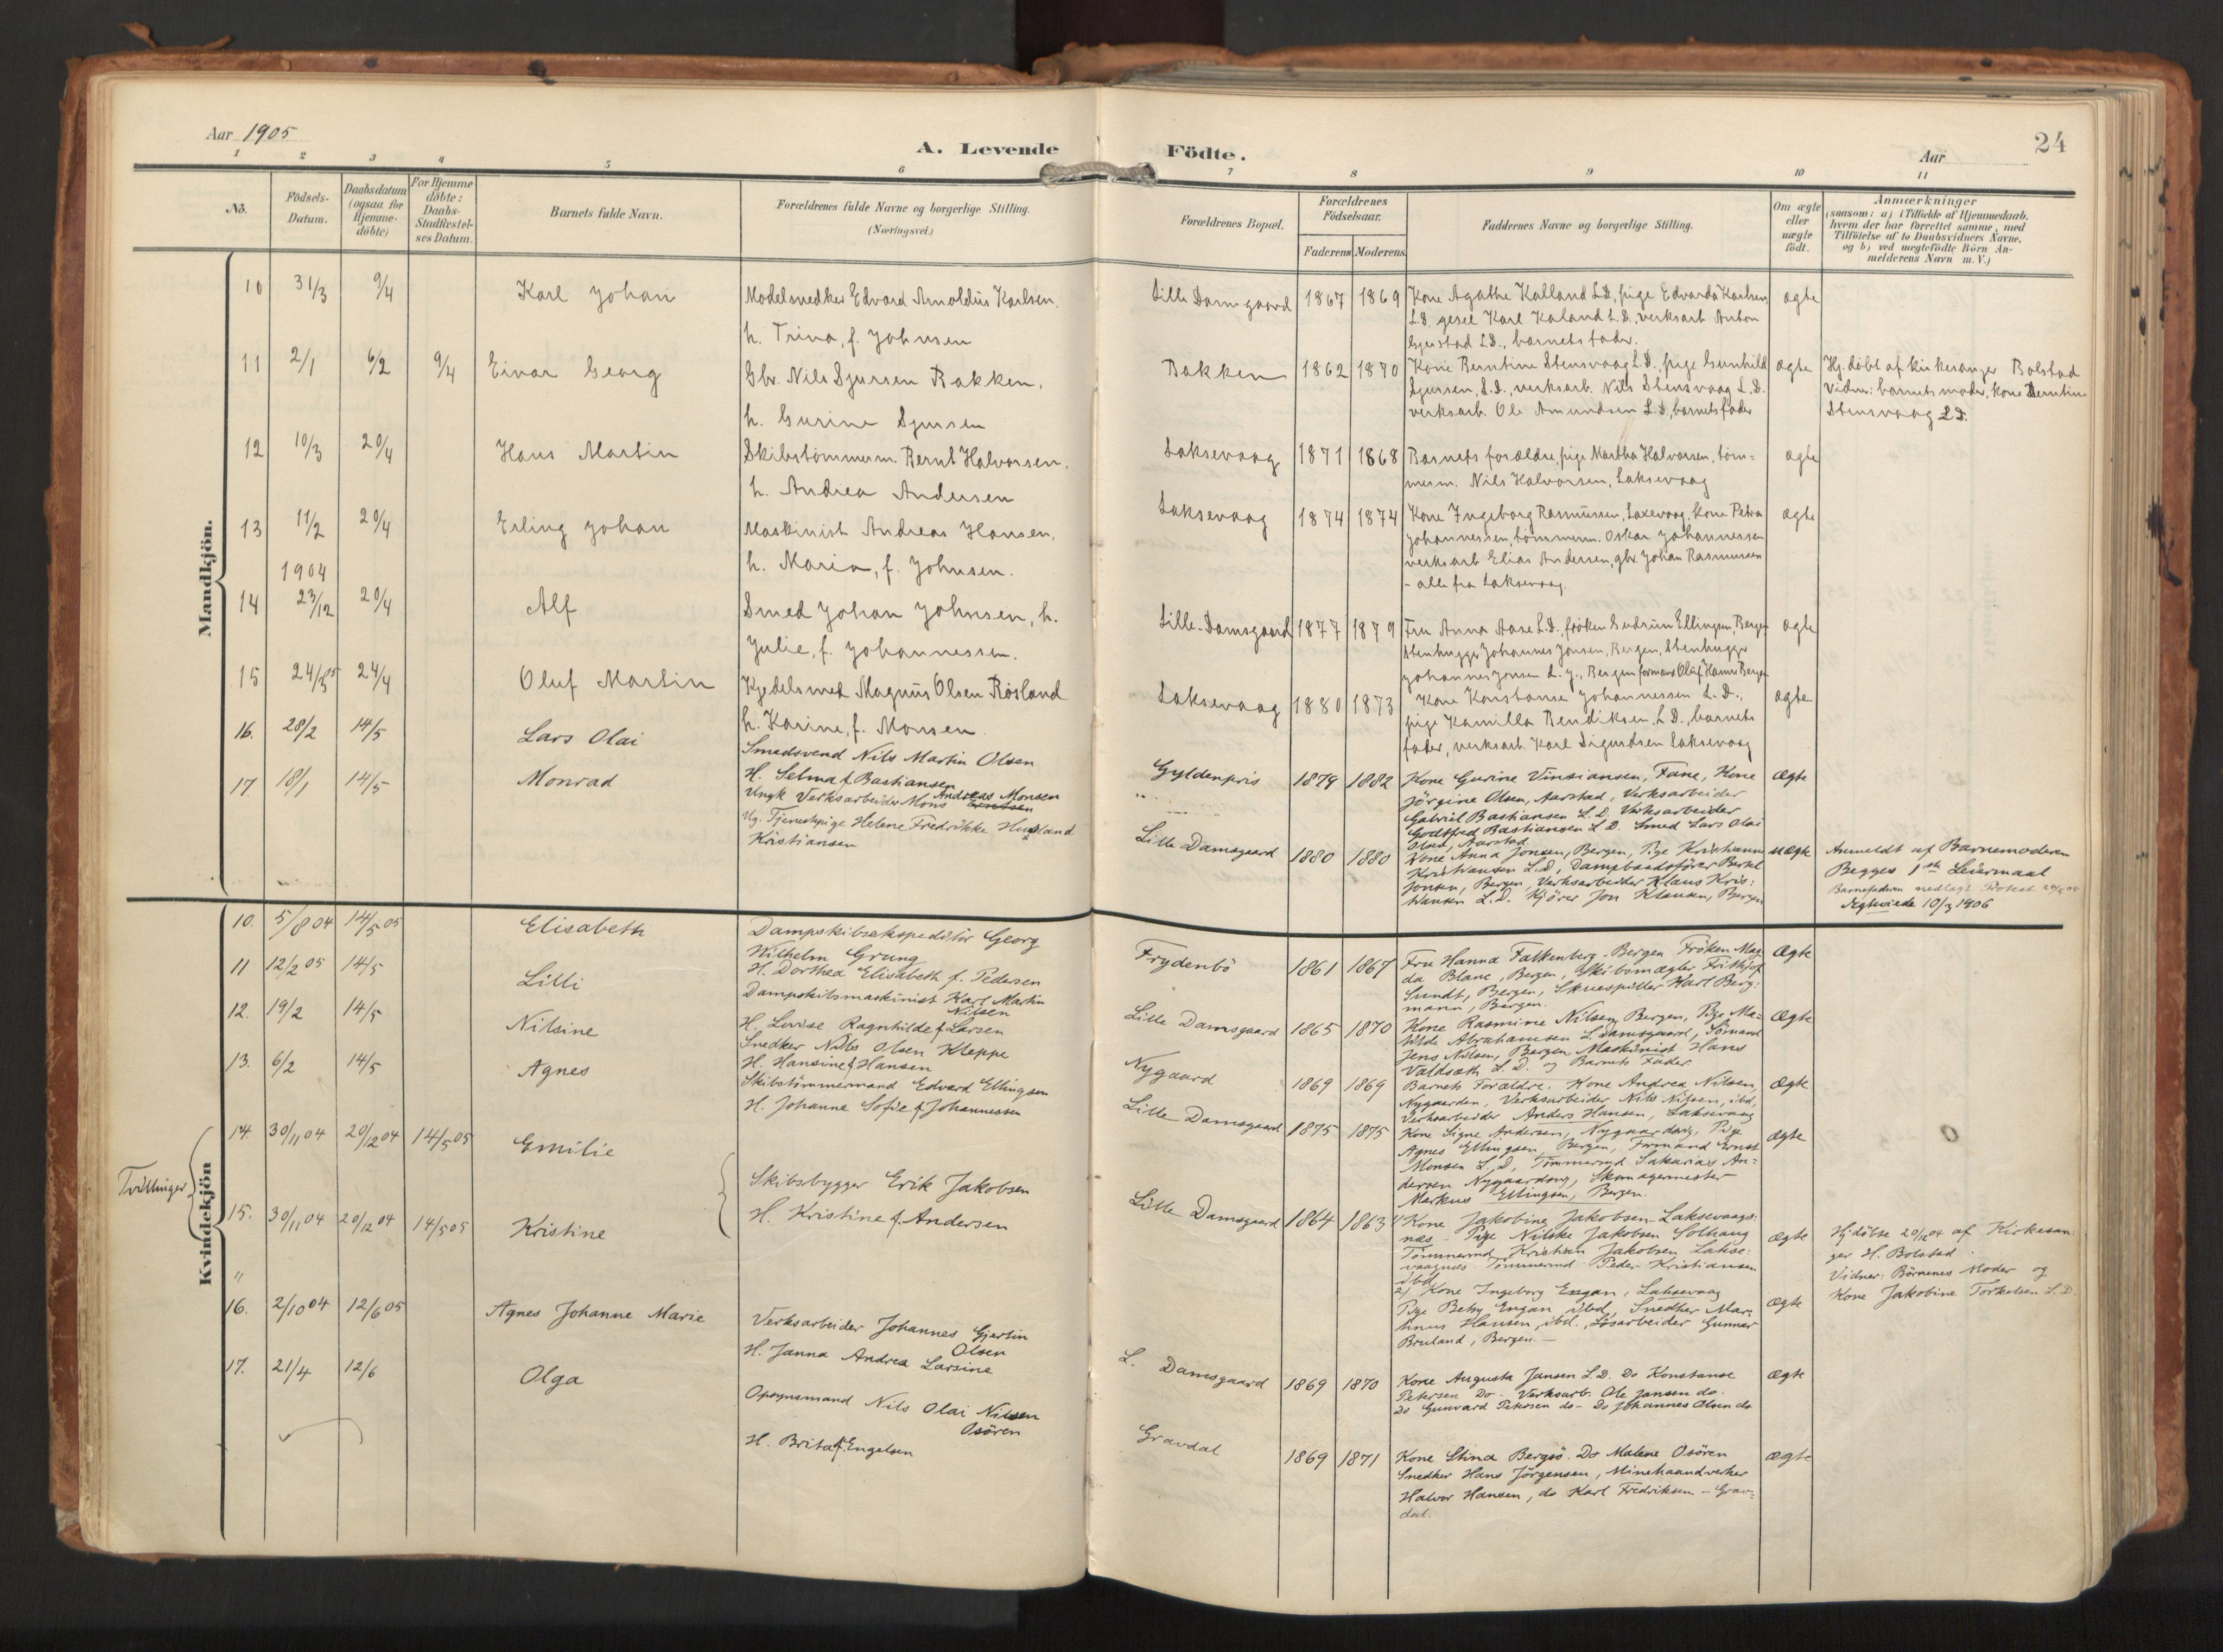 Aar 1905
A. Levende
Födte.
Aar
24
1 2 3 4 5 6 7 8 9 10 11
No.
Födsels-Datum.
Daabsdatum (ogsaa for Hjemme-döbte)
For Hjemme döbte: Daabs-Stadfæstel-ses Datum.
Barnets fulde Navn.
Forældrenes fulde Navne og borgerlige Stilling. (Næringsvei.)
Forældrenes Bopæl.
Forældrenes Födselsaar.
Faderens Moderens
Faddernes Navne og borgerlige Stilling.
Om ægte eller uægte födt.
Anmærkninger
(saasom: a) i Tilfælde af Hjemmedaab,
hvem der har forrettet samme, med
Tilföielse af to Daabsvidners Navne,
og b) ved uægtefödte Börn An-
melderens Navn m. V.)
Mandkjön.
10 31/3 9/4 Karl Johan
Modelsnedker Edvard Arnoldus Karlsen.
h. Trina, f. Johnsen
Lille Damsgaard 1867 1869
Kone Agathe Kalland L.D., pige Edvarda Karlsen
L.D. gesel Karl Kaland L.D., verksarb Anton
Gjerstad L.D., barnets fader.
ægte
11 2/1 6/2 9/4 Einar Georg
Gbr. Nils Sjursen Bakken.
h. Gurine Sjursen
Bakken 1862 1870
Kone Berntine Stensvaag L.D., pige Gunhild
Sjursen, L.D., verksarb. Nils Stensvaag L.D.
verksarb. Ole Amundsen L.D., barnets fader
ægte
Hj. döbt af kirkesanger Bolstad
Vidner: barnets moder, kone Berntine
Stensvaag L.D.
12 10/3 20/4 Hans Martin
Skibstömmerm. Bernt Halvorsen.
h. Andrea Andersen
Laksevaag 1871 1868
Barnets forældre, pige Martha Halvorsen, töm-
merm. Nils Halvorsen, Laksevaag
ægte
13 11/2 20/4 Erling Johan
Maskinist Andreas Hansen.
h. Maria, f. Johnsen.
Laksevaag 1874 1874
Kone Ingeborg Rasmussen, Laxevaag, kone Petra
Johannessen, tömmerm. Oskar Johannessen
verksarb Elias Andersen, gbr. Johan Rasmussen
- alle fra Laksevaag.
ægte
1904
14 23/12 20/4 Alf
Smed Johan Johnsen, h.
Julie, f. Johannessen.
Lille-Damsgaard 1877 1879
Fru Anna Aase L.D., fröken Gudrun Ellingsen, Bergen
Stenhugger Johannes Jonsen, Bergen, Stenhugger
Johannes Jonsen d. y., Bergen formand Oluf Hamre Bergen
ægte
15 24/3 05 24/4 Oluf Martin
Kjedelsmed Magnus Olsen Rösland
h. Karine, f. Monsen
Laksevaag 1880 1873
Kone Konstanse Johannessen L.D.,
pige Kamilla Bendiksen, L.D., barnets
fader, verksarb. Karl Sigurdsen Laksevaag
ægte
16. 28/2 14/5 Lars Olai
Smedsvend Nils Martin Olsen
H. Selma f. Bastiansen
Gyldenpris 1879 1882
Kone Gurine Vinsiansen, Fane, Kone
Jörgine Olsen, Aarstad, Verksarbeider
Gabriel Bastiansen L.D. Verksarbeider
Godtfred Bastiansen L.D. Smed Lars Olai
Olsen, Aarstad
Ægte
17. 18/1 14/5 Monrad
Ungk Verksarbeider Mons Andreas Monsen
Ug. Tjenestepige Helene Fredrikke Husland
Kristiansen
Lille Damsgaard 1880 1880
Kone Anna Jonsen, Bergen, Pige Kristianne
Kristiansen L.D., Dampbaadsförer Bertel
Jonsen, Bergen, Verksarbeider Klaus Kris:
tiansen L.D. Kjörer Jon Klausen, Bergen
uægte
Anmeldt af Barnemoderen
Begges 1ste Leiermaal
Barnefaderen nedlagt Protest 29/5 05
Ægteviede 10/3 1906
Kvindekjön
10. 5/8 04 14/5 05 Elisabeth
Dampskibsekspeditör Georg
Wilhelm Grung
H. Dorthea Elisabeth f. Pedersen
Frydenbö 1861 1867
Fru Hanna Falkenberg, Bergen Fröken Mag:
da Blanc, Bergen, Skibsmægler Frithjof
Sundt, Bergen, Skuespiller Karl Berg:
mann, Bergen.
Ægte
11 12/2 05 14/5 Lilli
Dampskibsmaskinist Karl Martin
Nilsen
H. Lovise Ragnhilde f Larsen
Lille Damsgaard 1865 1870
Kone Rasmine Nilsen, Bergen, Pige Ma-
tilde Abrahamsen L. Damsgaard, Sömand
Jens Nilsen, Bergen, Maskinist Hans
Valdsæth L.D. og Barnets Fader.
Ægte
12. 19/2 14/5 Nilsine
Snedker Nils Olsen Kleppe
H. Hansine f Hansen
Nygaard 1869 1869
Barnets Forældre. Kone Andrea Nilsen,
Nygaarden, Verksarbeider Nils Nilsen, ibd,
Verksarbeider Anders Hansen, Laksevaag
Ægte
13. 6/2 14/5 Agnes
Skibstömmermand Edvard Ellingsen
H. Johanna Sofie f. Johannessen
Lille Damsgaard 1875 1875
Kone Signe Andersen, Nygaardsvg, Pige
Agnes Ellingsen, Bergen, Formand Ernst
Monsen L.D., Tömmermd Sakarias An:
dersen Nygaardsvg, Skomagermester
Markus Ellingsen, Bergen.
Ægte
Tvillinger
14. 30/11 04 20/12 04 14/5 05 Emilie
15. 30/11 04 20/12 04 14/5 05 Kristine
Skibsbygger Erik Jakobsen
H. Kristine f. Andersen
Lille Damsgaard 1864 1863
1) Kone Jakobine Jakobsen Laksevaags:
næs - Pige Nilske Jakobsen Solhaug
Tömmermd Kristian Jakobsen Lakse:
vaagnæs Tömmermd Peder Kristiansen
ibd.
2) Kone Ingeborg Engan, Laksevaag
Pige Betsy Engan, ibid, Snedker Mar:
tinus Hansen, ibd., Lösarbeider Gunnar
Bruland, Bergen. -
ægte
Ægte
Hjdöbte 20/12 04 af Kirkesan:
ger H. Bolstad.
Vidner: Börnenes Moder og
Kone Jakobine Torkelsen L.D.
"
16. 2/10 04 12/6 05 Agnes Johanne Marie
Verksarbeider Johannes Gjertin
Olsen
H. Janna Andrea Larsine
L. Damsgaard 1869 1870
Kone Augusta Jansen L.D. Do Konstanse
Petersen Do - Verksarb. Ole Jansen do.
Do Gunvard Petersen do - Do Johannes Olsen do
Ægte
17. 21/4 12/6 Olga
Opsynsmand Nils Olai Nilsen
Osören
H. Brita f. Engelsen
Gravdal 1869 1871
Kone Stina Bergsö. Do Malene Osören
Snedker Hans Jörgensen, Minehaandverker
Halvor Hansen, do Karl Fredriksen - Grav:
dal.
Ægte